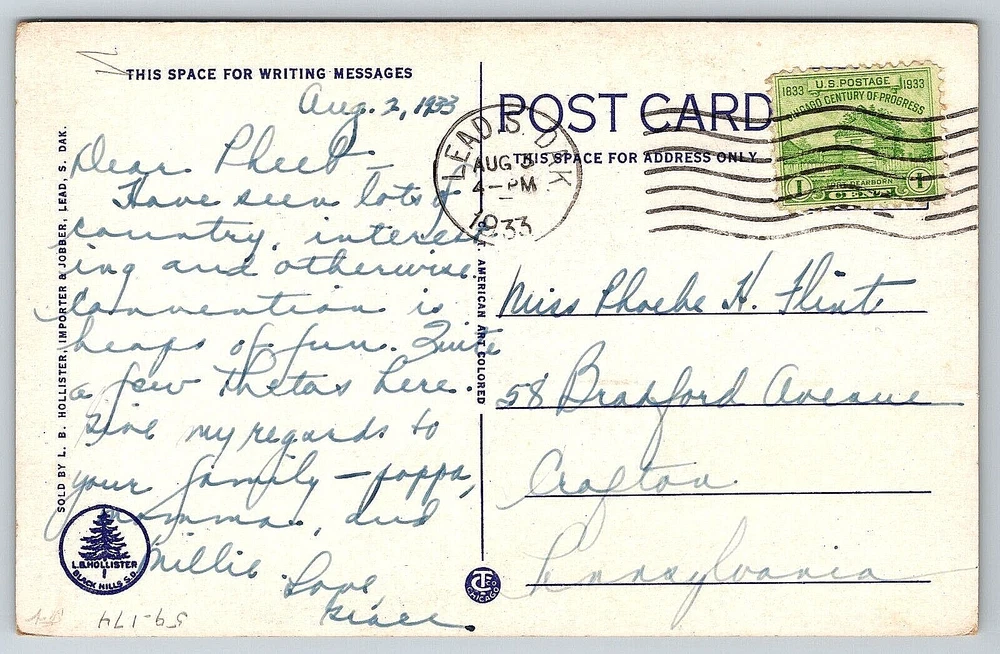 THIS SPACE FOR WRITING MESSAGES
Aug. 2, 1933
Dear Pheet -
Have seen lots of
country, interest-
ing and otherwise.
Convention is
heaps of fun. Quite
a few Thetas here.
Give my regards to
your family - poppa,
momma, and
Millie.
Love,
Grace.
SOLD BY L. B. HOLLISTER, IMPORTER & JOBBER, LEAD, S. DAK.
L.B. HOLLISTER
BLACK HILLS S.D.
59-174
AMERICAN ART COLORED
CHICAGO
POST CARD
THIS SPACE FOR ADDRESS ONLY
LEAD S. DAK
AUG 3
4-PM
1933
1833 U.S. POSTAGE 1933
CHICAGO CENTURY OF PROGRESS
FORT DEARBORN
1 1
Miss Phoebe H. Flint
58 Bradford Avenue
Crafton
Pennsylvania